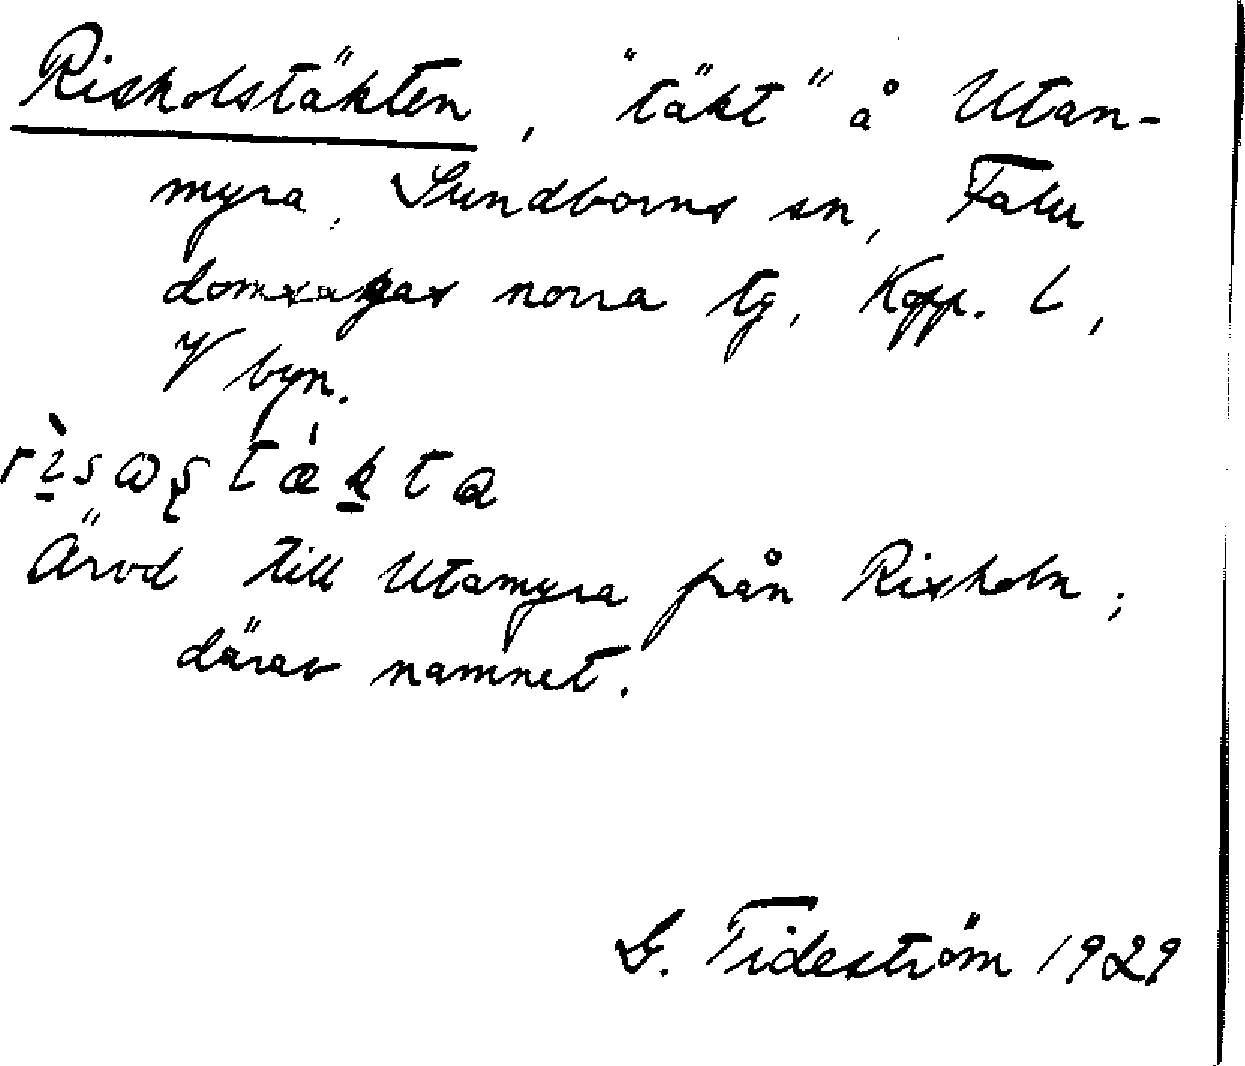 Risholstäkten, "täkt" å Utan-
myra, Sundborns sn, Falu
domsagas norra tg, Kopp. l,
V byn.
Ärvd till Utamyra från Risholn;
därav namnet.
G. Tideström 1929